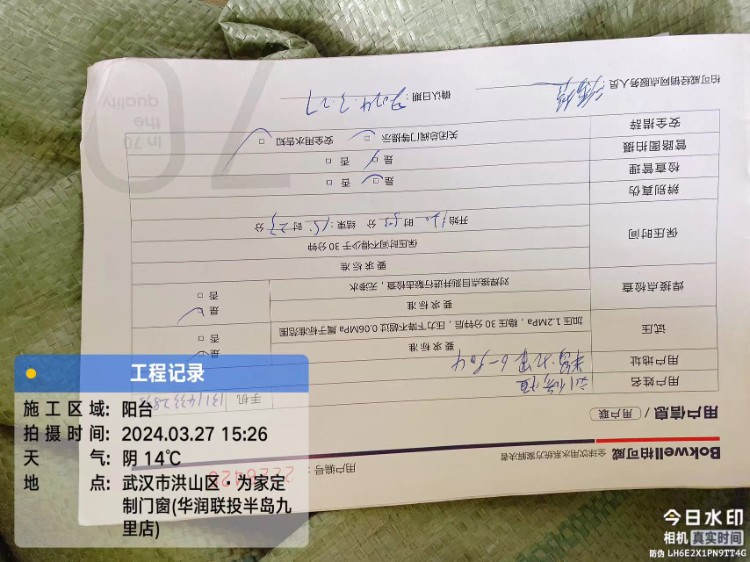 Bokwell柏可威 全球饮用水系统方案解决者
用户编号:
用户信息/ 用户联
用户姓名
手机
用户地址
6-504
试压
要求标准
加压1.2MPa，稳压30分钟后，压力下降不超过0.06MPa属于标准范围
是 □
否 □
焊接点检查
要求标准
对焊接点目测并进行敲击检查，无渗水
是 □
否 □
保压时间
要求标准
保压时间不得少于30分钟
开始 时 分 结束: 15 时 23 分
辨别真伪
是 □ 否 □
检查管理
是 □ 否 □
管路图拍摄
安全措辞
关闭总阀门等提示 □ 安全用水告知 □
柏可威经销网点服务人员:
确认日期: 2024.3.27
70
In 70
the
quality
工程记录
施工区域: 阳台
拍摄时间: 2024.03.27 15:26
天 气: 阴 14℃
地 点: 武汉市洪山区·为家定
制门窗(华润联投半岛九
里店)
今日水印
相机 真实时间
防伪 LH6E2X1PN9TT4G